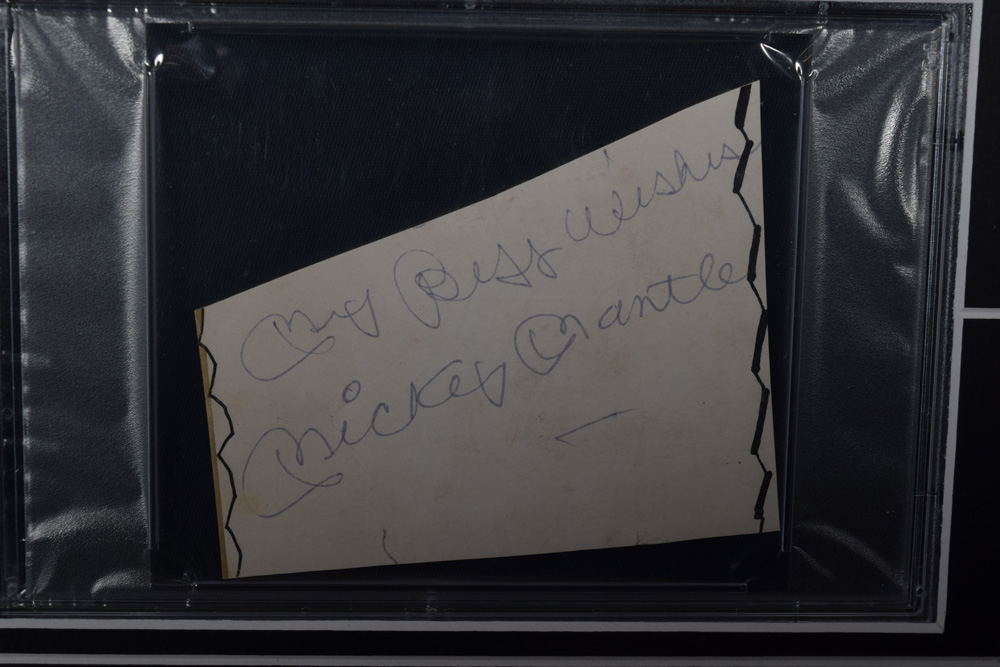 My Best Wishes
Mickey Mantle